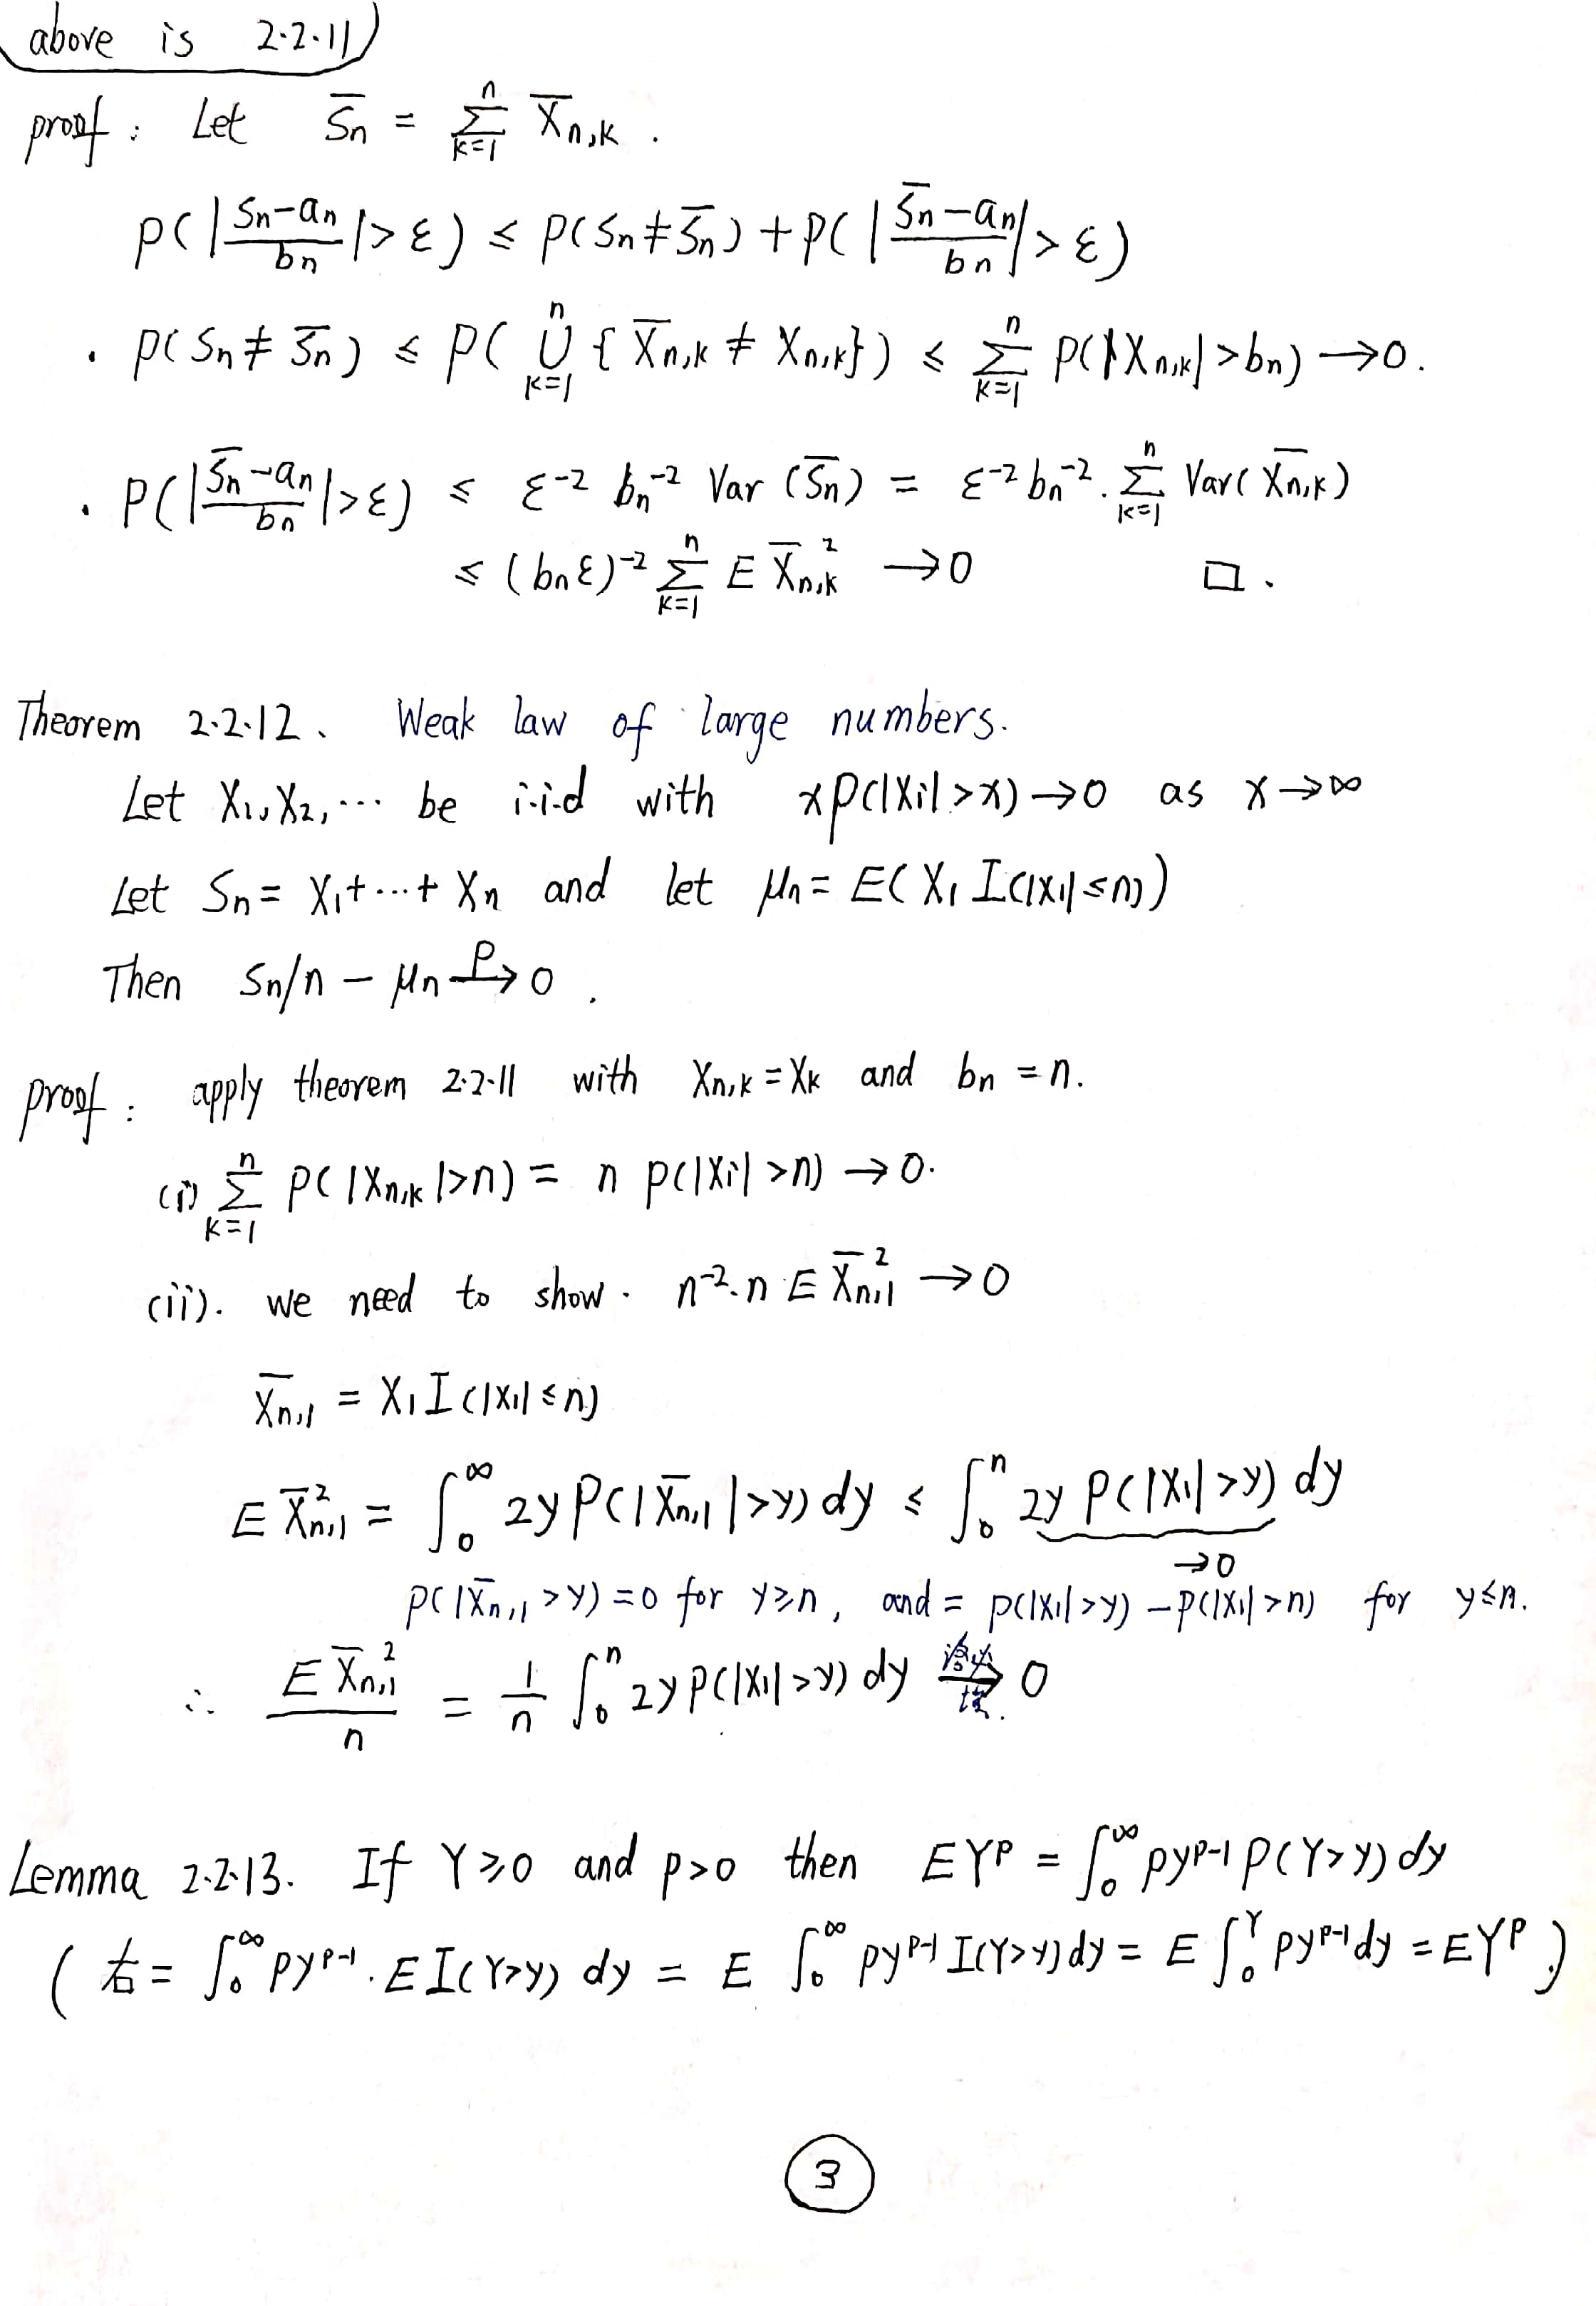 above is 2.2.11)
proof: Let S̄n = Σ_{k=1}^{n} X̄n,k .
P(|(Sn-an)/bn|>ε) ≤ P(Sn≠S̄n) + P(|(S̄n-an)/bn|>ε)
· P(Sn≠S̄n) ≤ P(⋃_{k=1}^{n} {X̄n,k ≠ Xn,k}) ≤ Σ_{k=1}^{n} P(|Xn,k|>bn) →0.
· P(|(S̄n-an)/bn|>ε) ≤ ε^{-2} bn^{-2} Var(S̄n) = ε^{-2} bn^{-2}. Σ_{k=1}^{n} Var(X̄n,k)
≤ (bnε)^{-2} Σ_{k=1}^{n} E X̄n,k² →0 □.
Theorem 2.2.12. Weak law of large numbers.
Let X1,X2,... be i.i.d with xP(|Xi|>x)→0 as x→∞
Let Sn = X1+...+Xn and let μn = E(X1 I(|X1|≤n))
Then Sn/n - μn →^P 0.
proof: apply theorem 2.2.11 with Xn,k = Xk and bn = n.
(i) Σ_{k=1}^{n} P(|Xn,k|>n) = n P(|Xi|>n) →0.
(ii). we need to show. n^{-2}.n E X̄n,1² →0
X̄n,1 = X1 I(|X1|≤n)
E X̄n,1² = ∫_0^∞ 2y P(|X̄n,1|>y) dy ≤ ∫_0^n 2y P(|X1|>y) dy
→0
P(|X̄n,1>y) = 0 for y≥n, and = P(|X1|>y) - P(|X1|>n) for y≤n.
∴ E X̄n,1²/n = 1/n ∫_0^n 2yP(|X1|>y) dy → 0
Lemma 2.2.13. If Y≥0 and p>0 then EY^p = ∫_0^∞ py^{p-1} P(Y>y) dy
(右 = ∫_0^∞ py^{p-1}. E I(Y>y) dy = E ∫_0^∞ py^{p-1} I(Y>y) dy = E ∫_0^Y py^{p-1} dy = EY^p.)
3